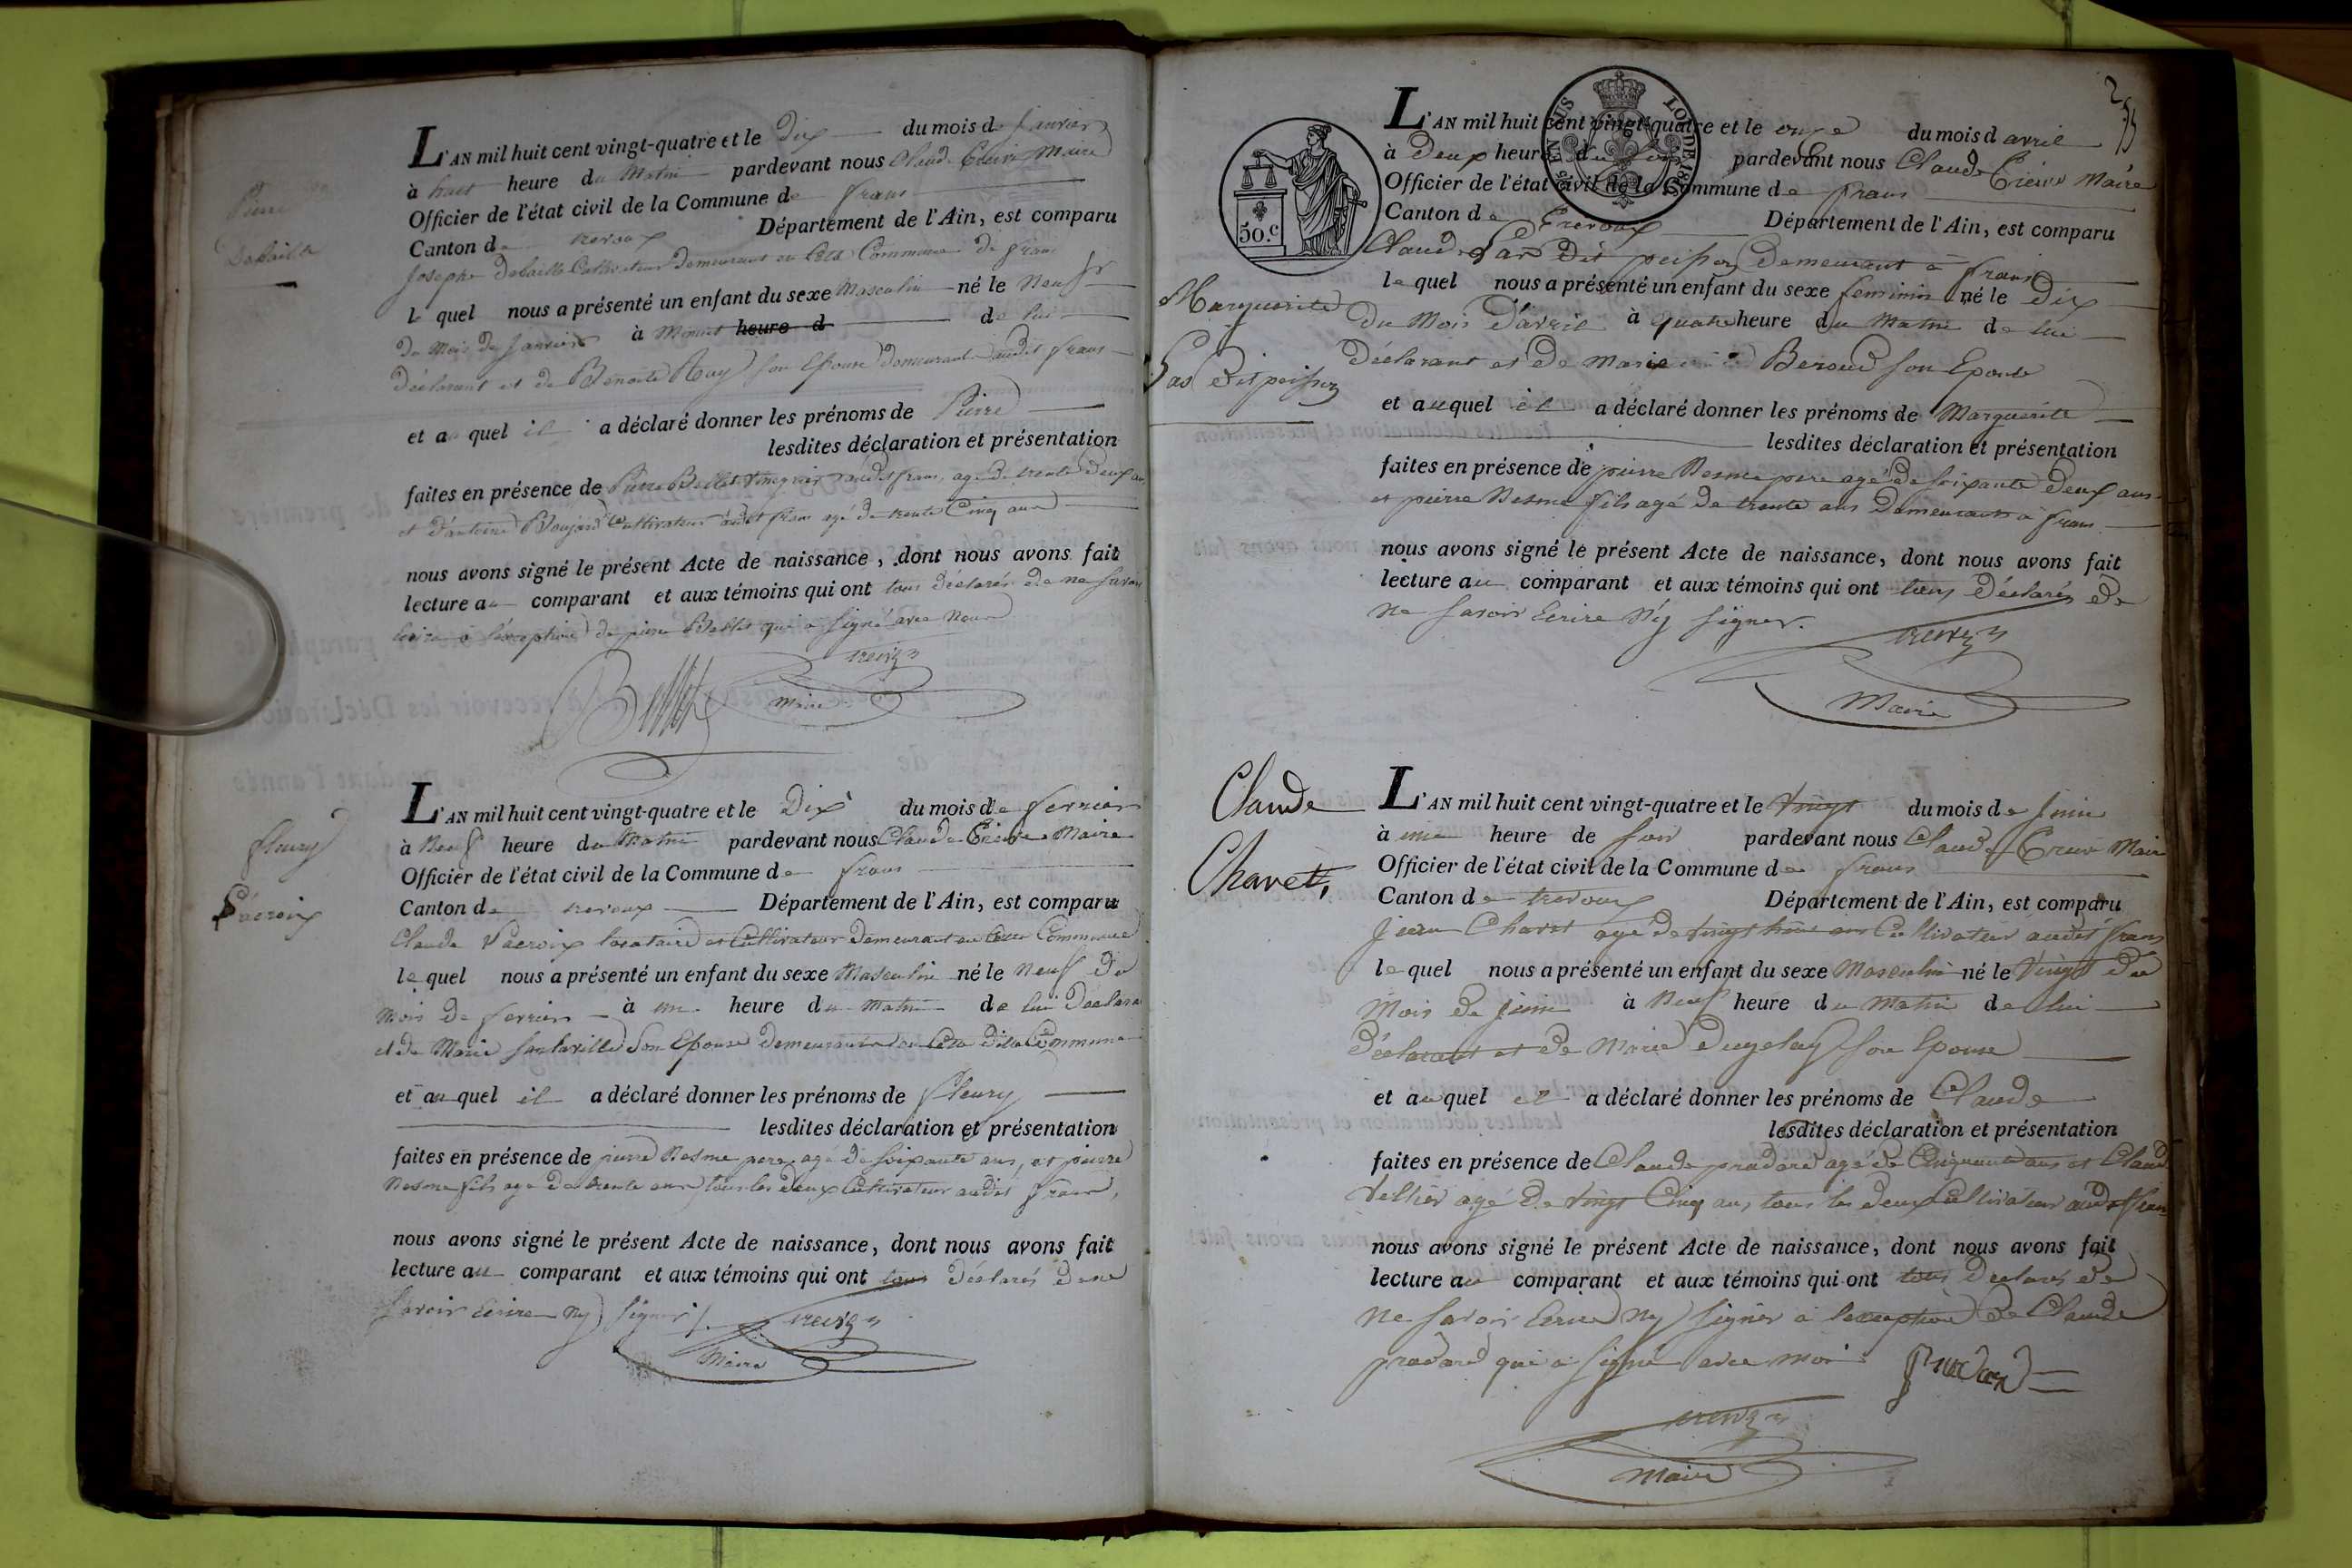 Pierre
Delaille
L'AN mil huit cent vingt-quatre et le Dix du mois de Janvier
à huit heure du Matin pardevant nous Claude Maire
Officier de l'état civil de la Commune de frans
Canton de trevoux Département de l'Ain, est comparu
Joseph Delaille Cultivateur Demeurant en Commune de frans
le quel nous a présenté un enfant du sexe Masculin né le Neuf
du Mois de Janvier à Minuit heure d de lui
déclarant et de Benoite Ruy son Epouse demeurant audit frans
et au quel il a déclaré donner les prénoms de Pierre
lesdites déclaration et présentation
faites en présence de Pierre Bellet audit frans, agé de trente Deux ans
et d'antoine Cultivateur audit frans agé de trente Cinq ans
nous avons signé le présent Acte de naissance, dont nous avons fait
lecture au comparant et aux témoins qui ont tous déclarés de ne savoir
Ecrire à l'exception de pierre Bellet qui a signé avec Nous
Bellet
Maire
fleury
L'AN mil huit cent vingt-quatre et le Dix du mois de fevrier
à Neuf heure du Matin pardevant nous Claude Maire
Officier de l'état civil de la Commune de frans
Canton de trevoux Département de l'Ain, est comparu
Claude locataire et Cultivateur Demeurant en Commune
le quel nous a présenté un enfant du sexe Masculin né le Neuf du
Mois de fevrier à une heure du Matin de lui Déclarant
et de Marie son Epouse Demeurant en dite Commune
et au quel il a déclaré donner les prénoms de fleury
lesdites déclaration et présentation
faites en présence de pierre Besme pere agé de soixante ans, et pierre
Besme fils agé de trente ans tous les deux Cultivateur audit frans,
nous avons signé le présent Acte de naissance, dont nous avons fait
lecture au comparant et aux témoins qui ont tous déclarés de ne
savoir Ecrire Ny signer
Maire
50.c
LOI DE
Marguerite
Gas dit peisson
L'AN mil huit cent vingt-quatre et le onze du mois d avril
à Deux heure du soir pardevant nous Claude Maire
Officier de l'état civil de la Commune de frans
Canton de Trevoux Département de l'Ain, est comparu
Claude Gas Dit peisson Demeurant à frans
le quel nous a présenté un enfant du sexe feminin né le Dix
du Mois D'avril à quatre heure du Matin de lui
Déclarant et De Marie Beroud son Epouse
et au quel il a déclaré donner les prénoms de Marguerite
lesdites déclaration et présentation
faites en présence de pierre Besme pere agé de soixante Deux ans
et pierre Besme fils agé De trente ans Demeurants à frans
nous avons signé le présent Acte de naissance, dont nous avons fait
lecture au comparant et aux témoins qui ont tous Déclarés de
ne savoir Ecrire N'y signer.
Maire
Claude
Chavet,
L'AN mil huit cent vingt-quatre et le vingt du mois de Juin
à une heure de soir pardevant nous Claude Maire
Officier de l'état civil de la Commune de frans
Canton de trevoux Département de l'Ain, est comparu
Jean Chavet agé de Cultivateur audit frans
le quel nous a présenté un enfant du sexe Masculin né le Vingt du
Mois de Juin à Neuf heure du Matin de lui
Déclarant et De Marie son Epouse
et au quel il a déclaré donner les prénoms de Claude
lesdites déclaration et présentation
faites en présence de Claude pradard agé de Cinquante ans et Claude
agé De Vingt Cinq ans, tous les deux Cultivateur audit frans
nous avons signé le présent Acte de naissance, dont nous avons fait
lecture au comparant et aux témoins qui ont tous Déclarés de
Ne savoir Ecrire Ny signer à l'exception de Claude
pradard qui a signé avec Moi pradard
Maire